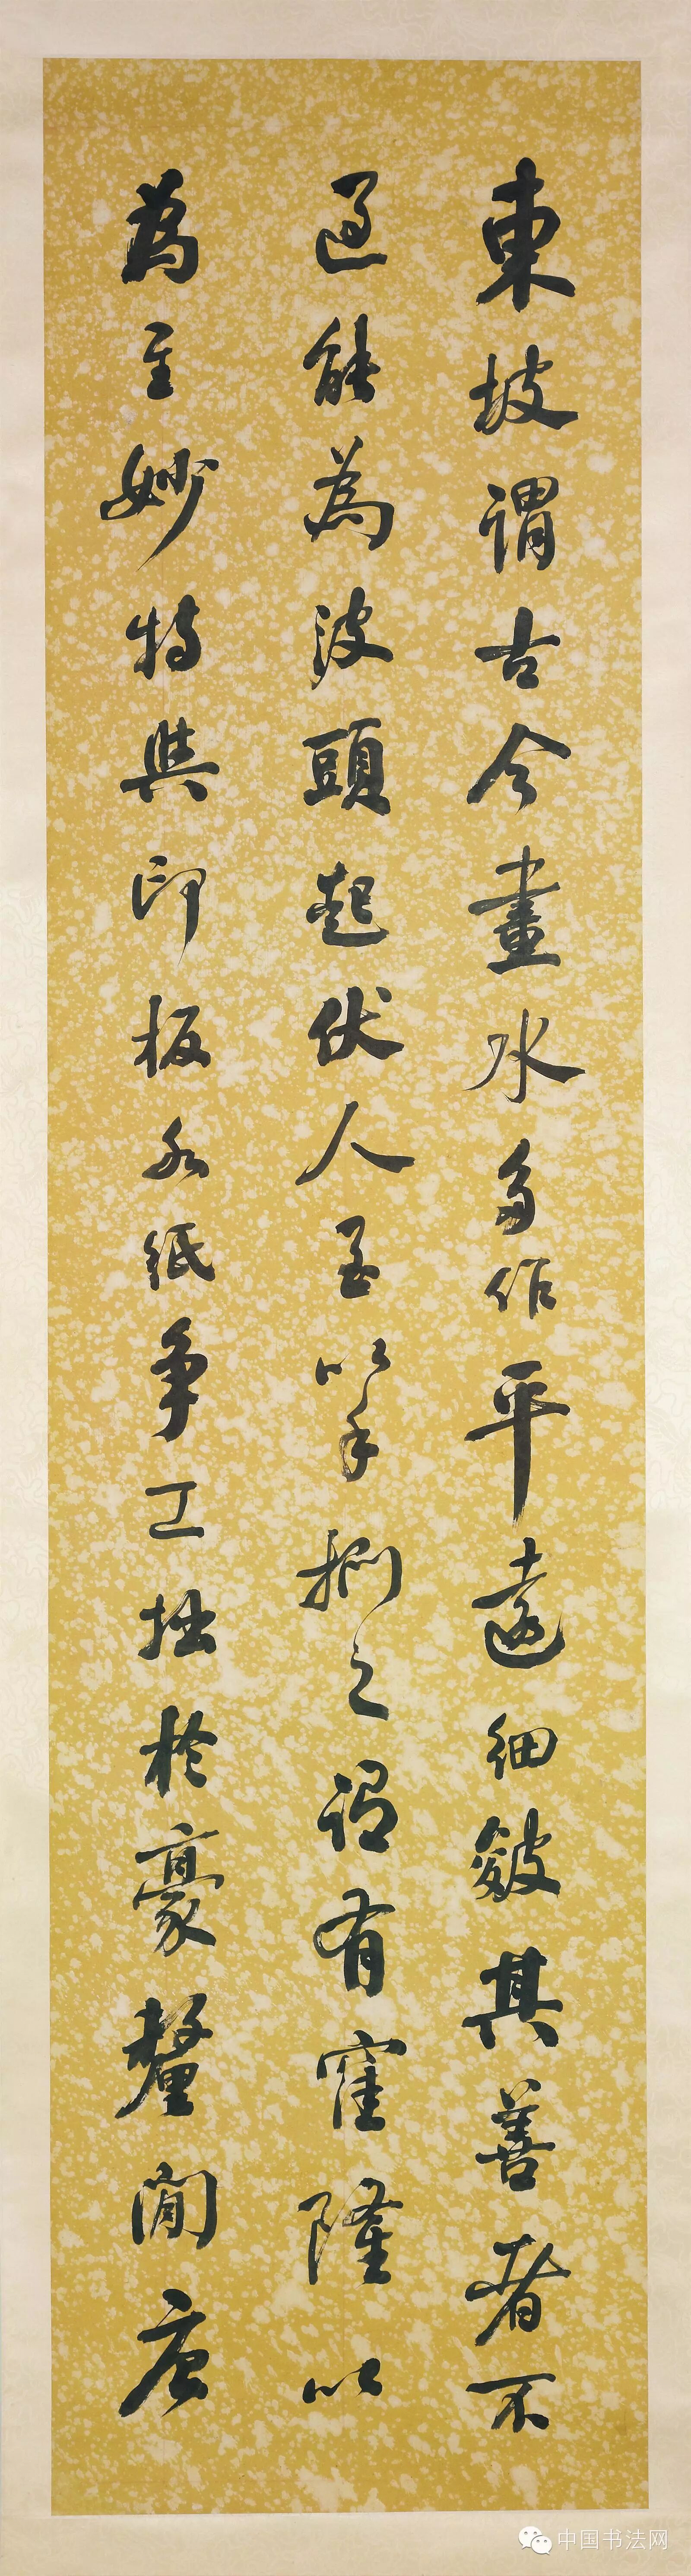 東坡謂古今畫水多作平遠細皴其善者不
過能為波頭起伏人至以手捫之謂有窪隆以
為至妙特與印板水紙爭工拙於豪釐間唐
中国书法网